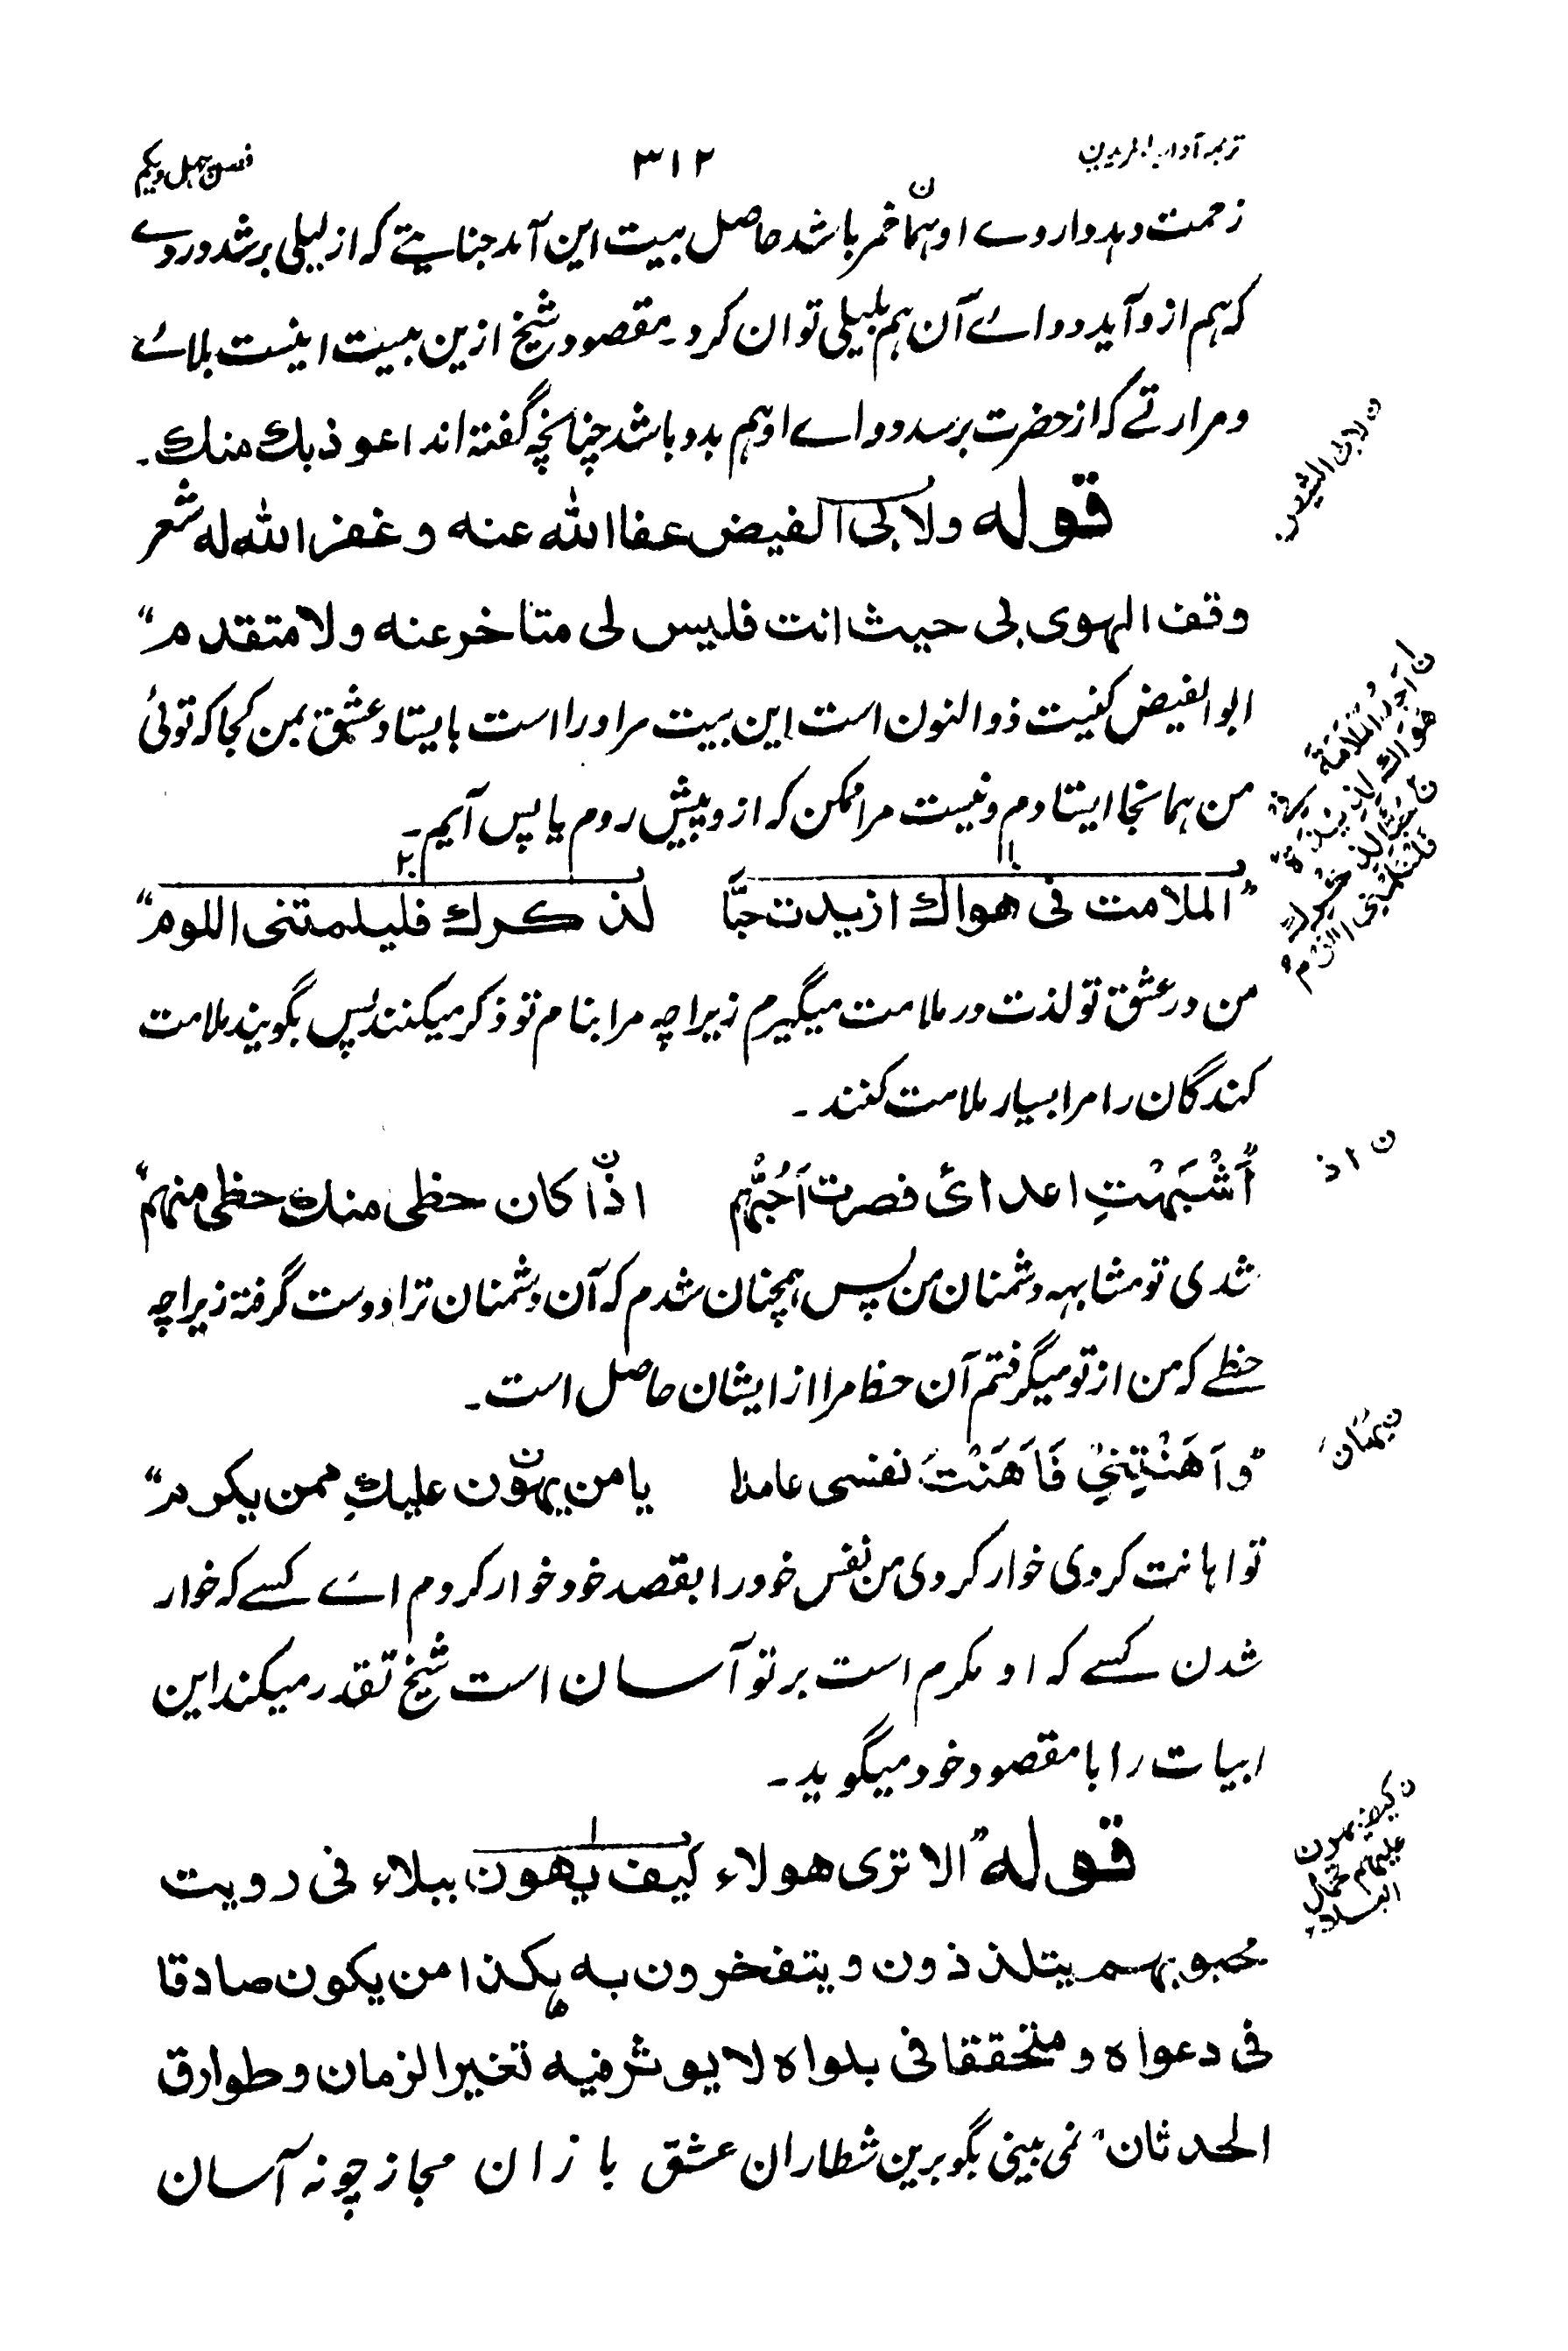 ترجمہ آداب المریدین
۳۱۲
فصل چہل ویکم
زحمت دہد داروے او ہما خمر باشد حاصل بیت این آمد جنایتے کہ از لیلی برشد و ردے
کہ ہم ازو آید دواے آن ہم بلیلی توان کرد۔ مقصود شیخ ازین بیت اینست بلاے
و مرارتے کہ از حضرت برسد دواے او ہم بدو باشد چنانچہ گفتہ اند اعوذ بك منك۔
قوله ولابی الفیض عفا اللہ عنه و غفر اللہ له شعر
وقف الہوی بی حیث انت فلیس لی متاخر عنه ولا متقدم"
ابو الفیض کنیت ذو النون است این بیت مر او را است بایستاد عشق بمن کجا کہ توئی
من ہمانجا ایستادم و نیست مرا ممکن کہ ازو پیش روم یا پس آیم۔
"الملامت فی هواك ازیدت حبّا لذ کرك فلیلمتنی اللوم"
من در عشق تو لذت در ملامت میگیرم زیراچہ مرا بنام تو ذکر میکنند پس بگویند ملامت
کنندگان را مرا بسیار ملامت کنند۔
"أَشْبَہْتِ اعدائ فصرت اَحُبُّہم اذا کان حظی منك حظی منہم"
شدی تو مشابہہ دشمنان من پس ہمچنان شدم کہ آن دشمنان ترا دوست گرفتہ زیراچہ
حظے کہ من از تو میگرفتم آن حظ مرا از ایشان حاصل است۔
"و اَهَنْتِنِیْ فَاَهَنْتَ نفسی عامدا یا من یہوّن علیكِ ممن یکرم"
تو اہانت کردی خوار کردی من نفس خود را بقصد خود خوار کردم اے کسے کہ خوار
شدن کسے کہ او مکرم است بر تو آسان است شیخ تقدر میکند این
ابیات را با مقصود خود میگوید۔
قوله "الا تری هولاء کیف یهون ببلاء فی رویت
محبوبہم یتلذذون و یتفخرون بہ ہکذا من یکون صادقا
فی دعواه و متحققا فی بلواه لا یوثر فیه تغیر الزمان و طوارق
الحدثان" نمی بینی بگو برین شطاران عشق بازان مجاز چونہ آسان
ن لابی الشیص
ن اَجِدُ الْمَلَامَةَ
ن اذ